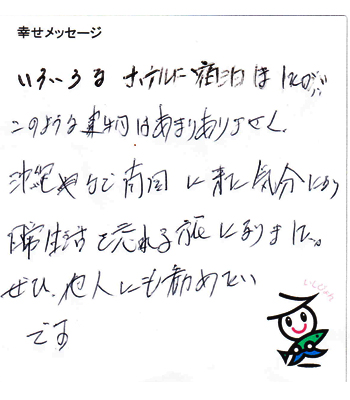 幸せメッセージ
いろいろな ホテルに宿泊しましたが、
このような建物はあまりありません。
沖縄で南国に来た気分になり
日常生活を忘れる旅になりました。
ぜひ、他人にも勧めたい
です